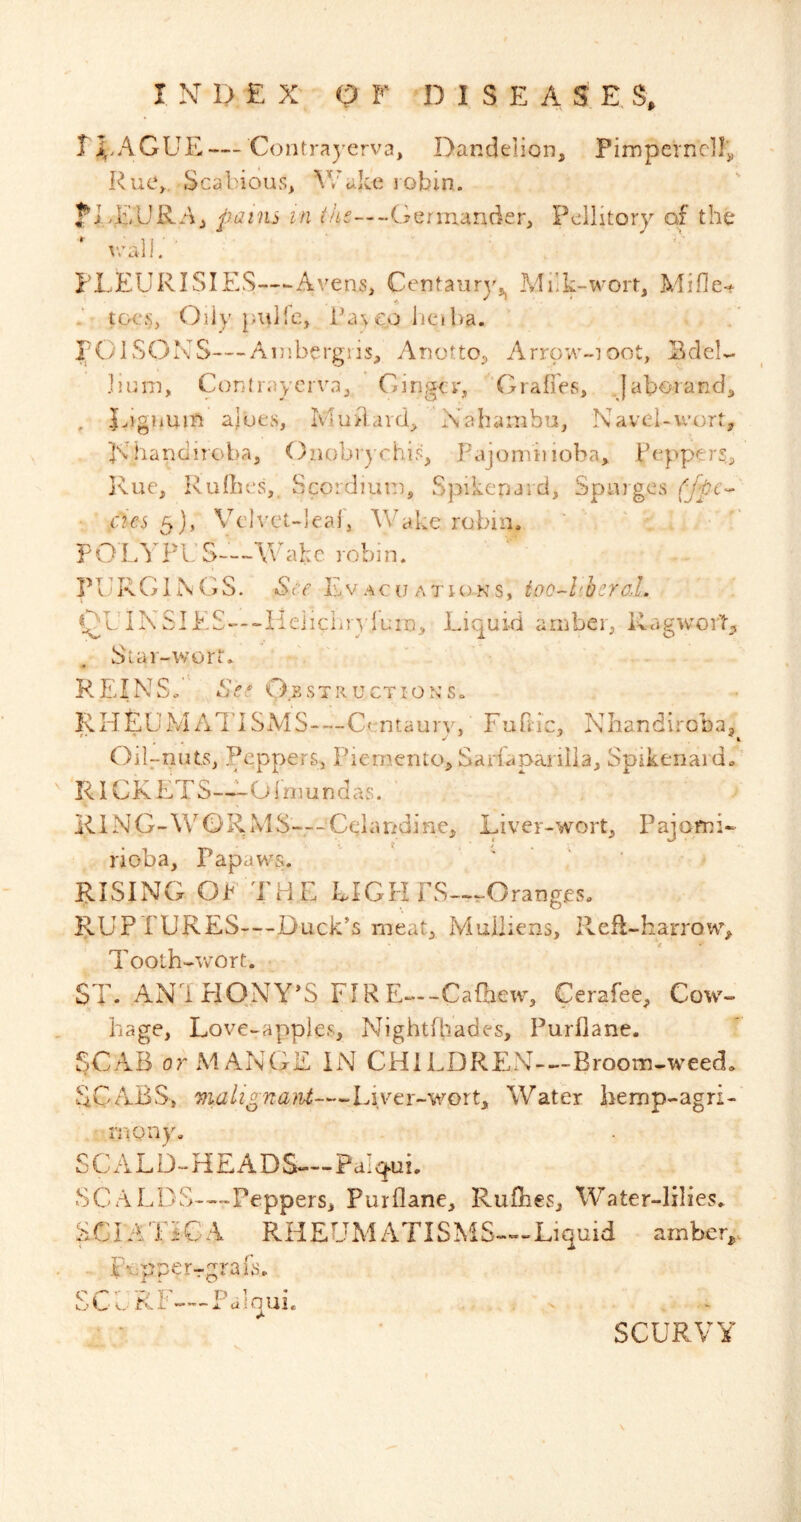 INDEX OF DISEASES.
PLAGUE—Contrayerva, Dandelion, Pimpernell,
Rue, Scabious, Wake robin.
PLEURA, pains in the—Germander, Pellitory of the
wall.
PLEURISIES—Avens, Centaury, Milk-wort, Miſle-
toes, Oily pulſe, Payco herba.
POISONS—Ambergris, Anotto, Arrow-root, Bdel-
lium, Contrayerva, Ginger, Graſſes, Jaborand,
Lignum aloes, Muſtard, Nahambu, Navel-wort,
Nhandiroba, Onobrychis, Pajomirioba, Peppers,
Rue, Ruſhes, Scordium, Spikenard, Spurges (ſpe-
cies 5), Velvet-leaf, Wake robin.
POLYPUS—Wake robin.
PURGINGS. See EVACUATIONS, too-liberal.
QUINSIES—Helichryſum, Liquid amber, Ragwort,
Star-wort.
REINS. See OBSTRUCTIONS.
RHEUMATISMS—Centaury, Fuſtic, Nhandiroba,
Oil-nuts, Peppers, Piemento, Sarſaparilla, Spikenard.
RICKETS—Oſmundas.
RING-WORMS—Celandine, Liver-wort, Pajomi-
rioba, Papaws.
RISING OF THE LIGHTS—Oranges.
RUPTURES—Duck's meat, Mulliens, Reſt-harrow,
Tooth-wort.
ST. ANTHONY'S FIRE—Caſhew, Ceraſee, Cow-
hage, Love-apples, Nightſhades, Purſlane.
SCAB or MANGE IN CHILDREN—Broom-weed.
SCABS, malignant—Liver-wort, Water hemp-agri-
mony.
SCALD-HEADS—Palqui.
SCALDS—Peppers, Purſlane, Ruſhes, Water-lilies.
SCIATICA RHEUMATISMS—Liquid amber,
Pepper-graſs.
SCURF—Palqui.
SCURVY